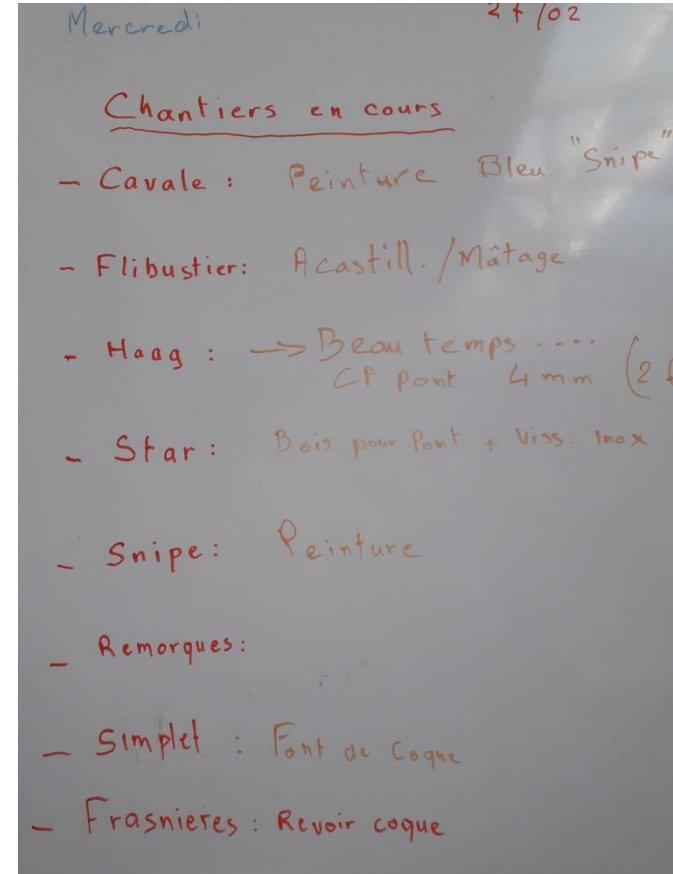 Mercredi /02
Chantiers en cours
- Cavale : Peinture Bleu "Snipe"
- Flibustier: Acastill. / Mâtage
- Haag : → Beau temps ....
CP pont 4 mm (2
- Star : Bois pour Pont + Viss. Inox
- Snipe : Peinture
- Remorques :
- Simplet : Font de Coque
- Frasnieres : Revoir coque